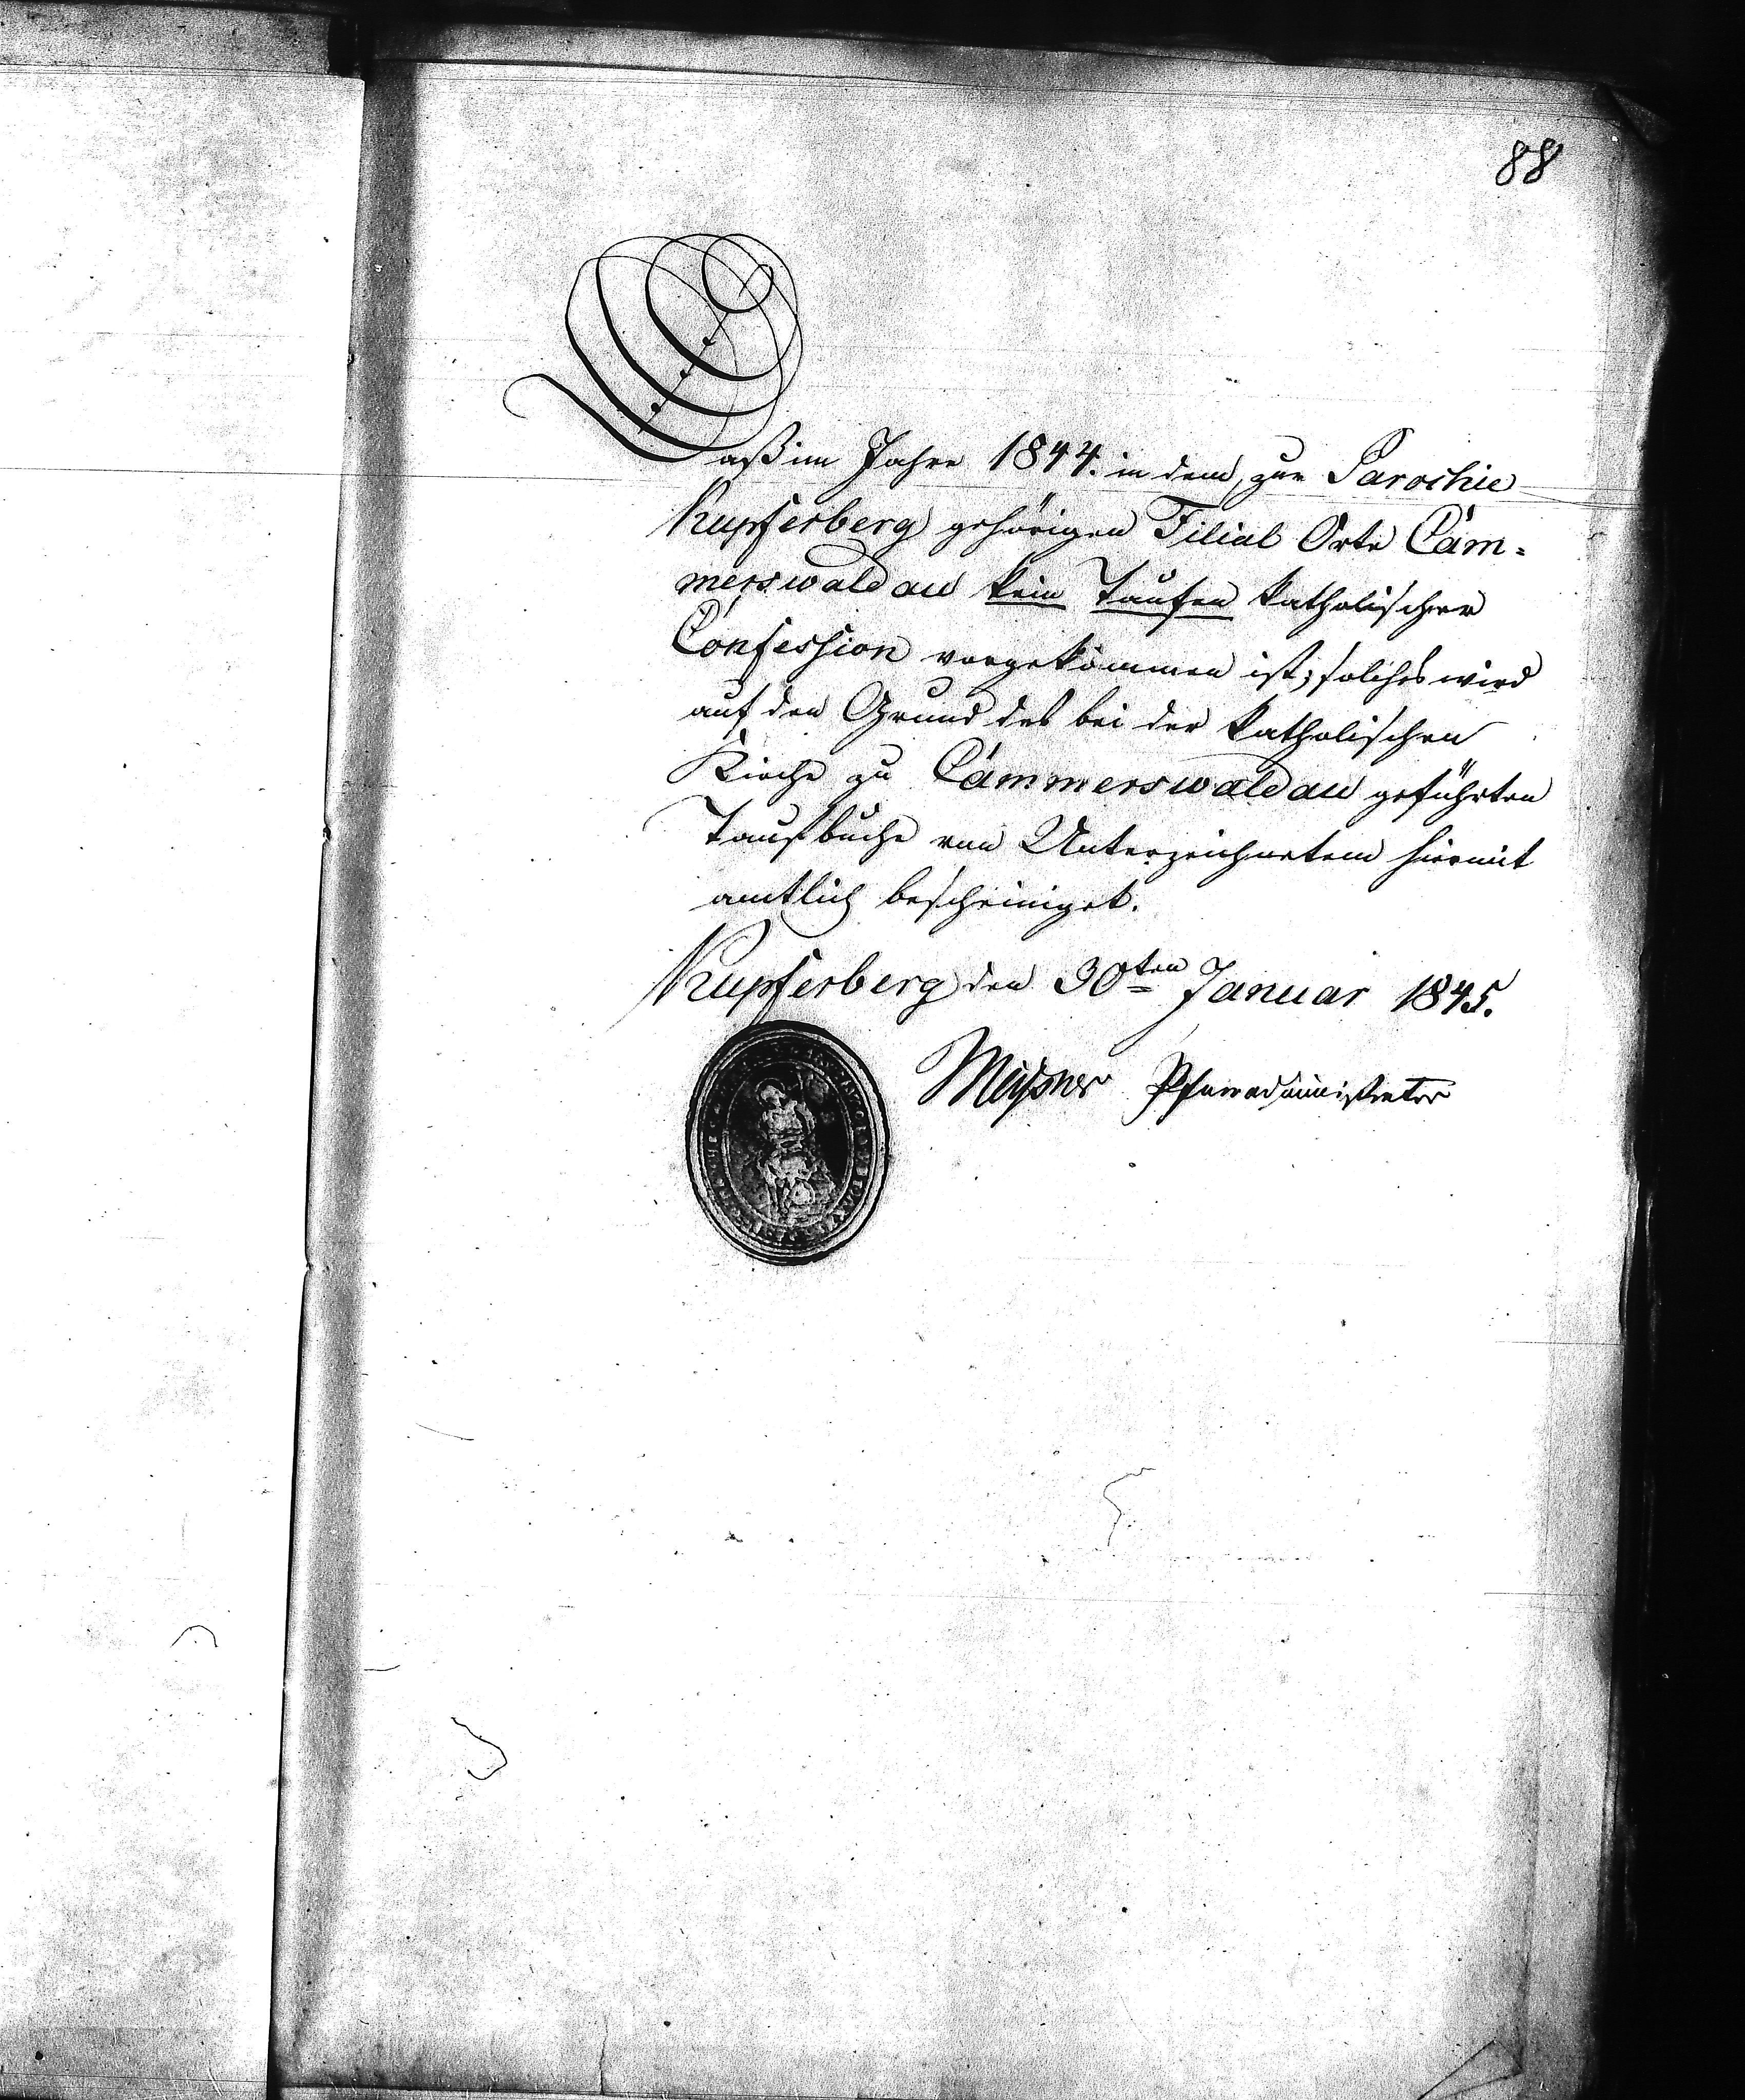 88
Daß im Jahre 1844. in dem, zur Parochie
Kupferberg gehörigen Filial Orte Cam=
merswaldau kein Taufen katholischer
Confession vorgekommen ist; solches wird
auf den Grund des bei der katholischen
Kirche zu Cammerswaldau geführten
Taufbuche von Unterzeichnetem hiermit
amtlich bescheiniget.
Kupferberg den 30ten Januar 1845.
Pfarradministrator